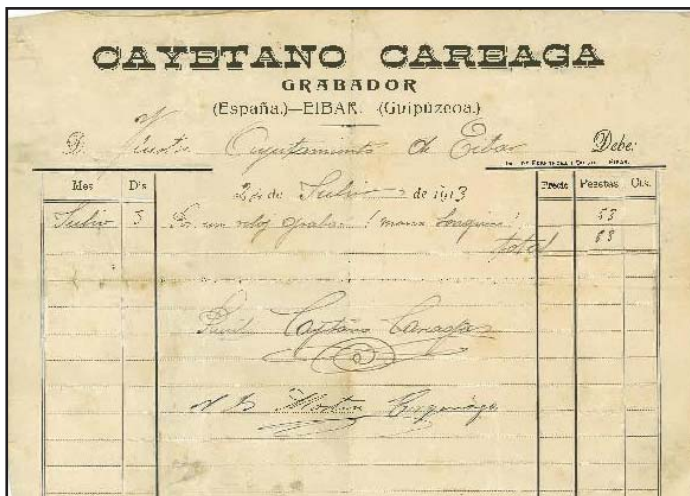 CAYETANO CAREAGA
GRABADOR
(España.)—EIBAR. (Guipúzcoa.)
D. Ilustre Ayuntamiento de Eibar Debe:
Mes Día 2 de Julio de 1913 Precio Pesetas Cts.
Julio 3 Por un reloj grabar 53
total 53
Recibí Cayetano Careaga